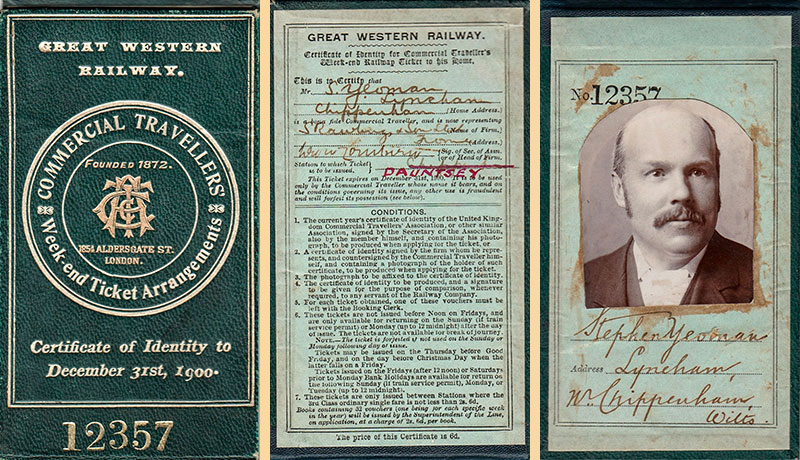 GREAT WESTERN
RAILWAY.
COMMERCIAL TRAVELLERS'
FOUNDED 1872.
185A ALDERSGATE ST.
LONDON.
Week-end Ticket Arrangements
Certificate of Identity to
December 31st, 1900.
12357
GREAT WESTERN RAILWAY.
Certificate of Identity for Commercial Traveller's
Week-end Railway Ticket to his Home.
This is to Certify that
Mr. S. Yeoman
Lyneham
Chippenham (Home Address.)
is a bona fide Commercial Traveller, and is now representing
(Name of Firm.)
(Address.)
(Sig. of Sec. of Assn.
or of Head of Firm.
Station to which Ticket
is to be issued. DAUNTSEY
This Ticket expires on December 31st, 1900. It is to be used
only by the Commercial Traveller whose name it bears, and on
the conditions governing its issue, any other use is fraudulent
and will forfeit its possession (see below).
CONDITIONS.
1. The current year's certificate of identity of the United King-
dom Commercial Travellers' Association, or other similar
Association, signed by the Secretary of the Association,
also by the member himself, and containing his photo-
graph, to be produced when applying for the ticket, or
2. A certificate of identity signed by the firm whom he repre-
sents, and countersigned by the Commercial Traveller him-
self, and containing a photograph of the holder of such
certificate, to be produced when applying for the ticket.
3. The photograph to be affixed to the certificate of identity.
4. The certificate of identity to be produced, and a signature
to be given for the purpose of comparison, whenever
required, to any servant of the Railway Company.
5. For each ticket obtained, one of these vouchers must be
left with the Booking Clerk.
6. These tickets are not issued before Noon on Fridays, and
are only available for returning on the Sunday (if train
service permit) or Monday (up to 12 midnight) after the day
of issue. The tickets are not available for break of journey.
NOTE.—The ticket is forfeited if not used on the Sunday or
Monday following day of issue.
Tickets may be issued on the Thursday before Good
Friday, and on the day before Christmas Day when the
latter falls on a Friday.
Tickets issued on Fridays (after 12 noon) or Saturdays
prior to Monday Bank Holidays are available for return on
the following Sunday (if train service permit), Monday, or
Tuesday (up to 12 midnight).
7. These tickets are only issued between Stations where the
3rd Class ordinary single fare is not less than 2s. 6d.
Books containing 52 vouchers (one being for each specific week
in the year) will be issued by the Superintendent of the Line,
on application, at a charge of 2s. 6d. per book.
The price of this Certificate is 6d.
No. 12357
Stephen Yeoman
Address Lyneham
Nr. Chippenham
Wilts.